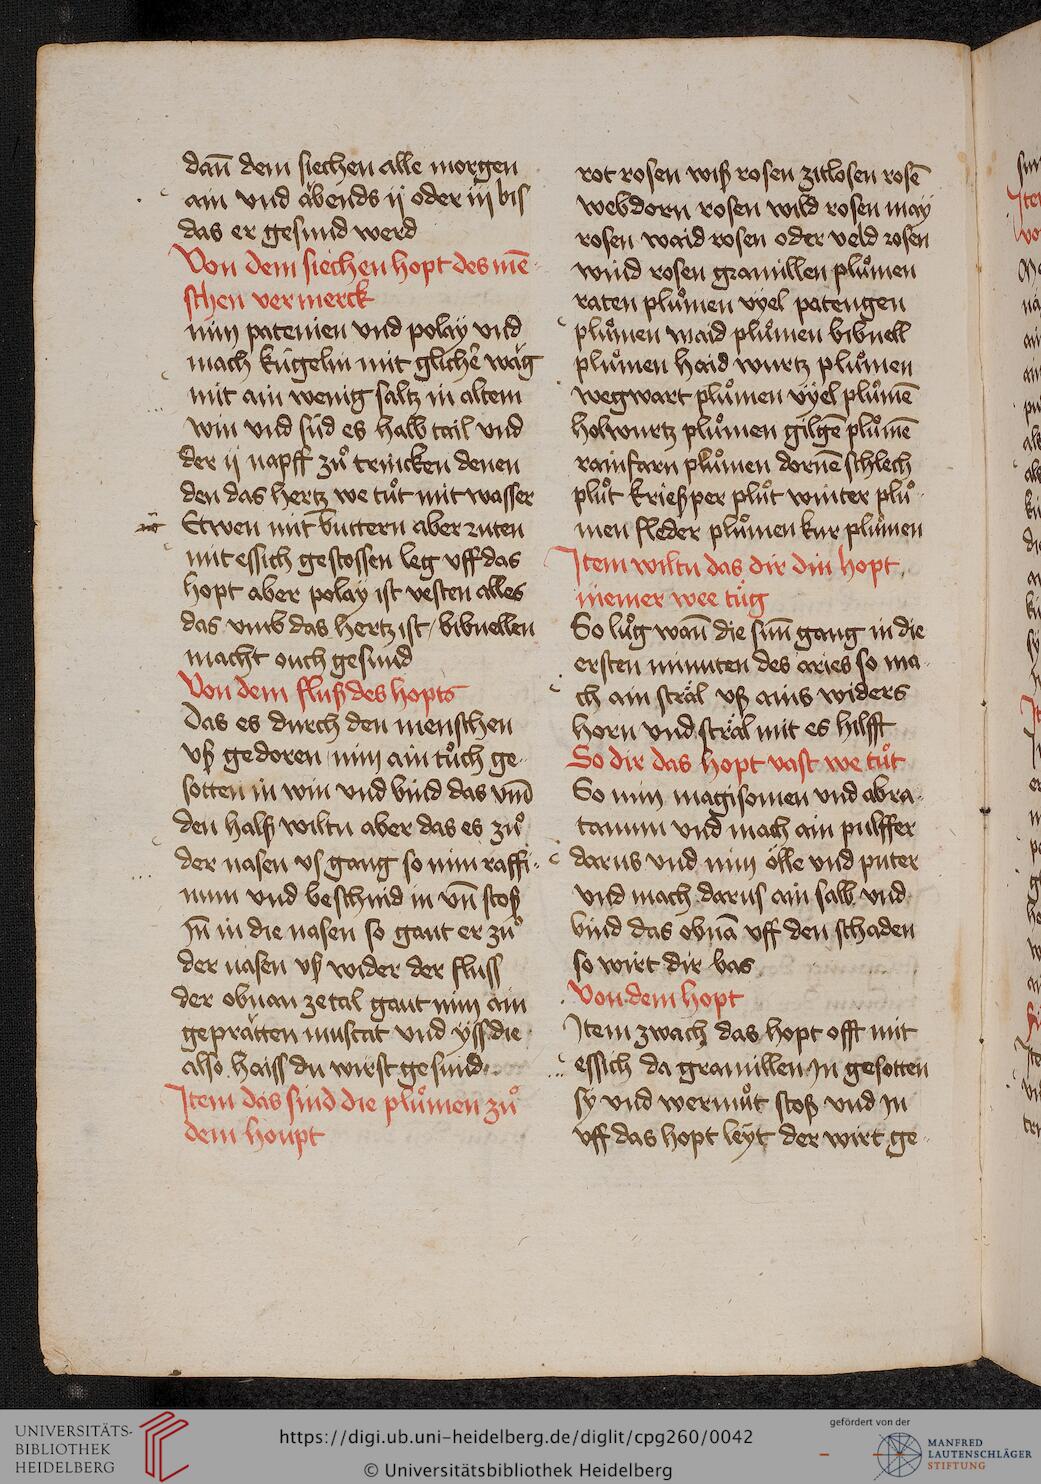 dañ dem siechen alle morgen
ain vnd abends ij oder iij bis
das er gesund werd
Von dem siechen hopt des mē-
schen vermerck
nim patenien vnd polaÿ vnd
mach kúgelin mit glichē wag
mit ain wenig saltz in altem
win vnd súd es halb tail vnd
der ij napff zuͦ trincken denen
den das hertz we tuͦt mit wasser
Etwen mit buttern aber ruten
mit essich gestossen leg vff das
hopt aber polay ist vesten alles
das vmb das hertz ist / bibnellen
macht ouch gesund
Von dem fluß des hopts
Das es durch den menschen
vß gedoren nim ain tuͦch ge-
sotten in win vnd bind das vm̄
den halß wiltu aber das es zuͦ
der nasen vs gang so nim raffi-
num vnd beschnid in vn̄ stoß
Jn̄ in die nasen so gaut er zuͦ
der nasen vß wider der fluss
der obnan zetal gaut nim ain
geprätten muscat vnd yss die
also haiss du wirst gesund
Item das sind die pluͦmen zuͦ
dem houpt
rot rosen wiß rosen zitlosen rosē
webdorn rosen wild rosen maÿ
rosen waid rosen oder veld rosen
wind rosen gramillen pluͦmen
raten pluͦmen vyel patengen
pluͦmen waid pluͦmen bibnell
pluͦmen haid wurtz pluͦmen
wegwart pluͦmen vÿel pluͦmē
holwurtz pluͦmen gilgē pluͦmē
rainfarn pluͦmen dornē schlech
pluͦt krießper pluͦt winter pluͦ-
men fleder pluͦmen kur pluͦmen
Item wiltu das dir din hopt
niemer wee tuͤg
So luͦg wañ die suñ gang in die
ersten minuten des aries so ma-
ch ain sträl vß ains widers
horn vnd sträl mit es hilfft
So dir das hopt vast we tuͦt
So nim magisomen vnd abra-
tanum vnd mach ain pulffer
darus vnd nim ölle vnd puter
vnd mach darus ain salb vnd
bind das obnā vff den schaden
so wirt dir bas
Von dem hopt
Item zwach das hopt offt mit
essich da gramillen Jn gesotten
sÿ vnd wermuͦt stoß vnd Jn
vff das hopt leÿt der wirt ge-
UNIVERSITÄTS-
BIBLIOTHEK
HEIDELBERG
https://digi.ub.uni-heidelberg.de/diglit/cpg260/0042
© Universitätsbibliothek Heidelberg
gefördert von der
MANFRED
LAUTENSCHLÄGER
STIFTUNG